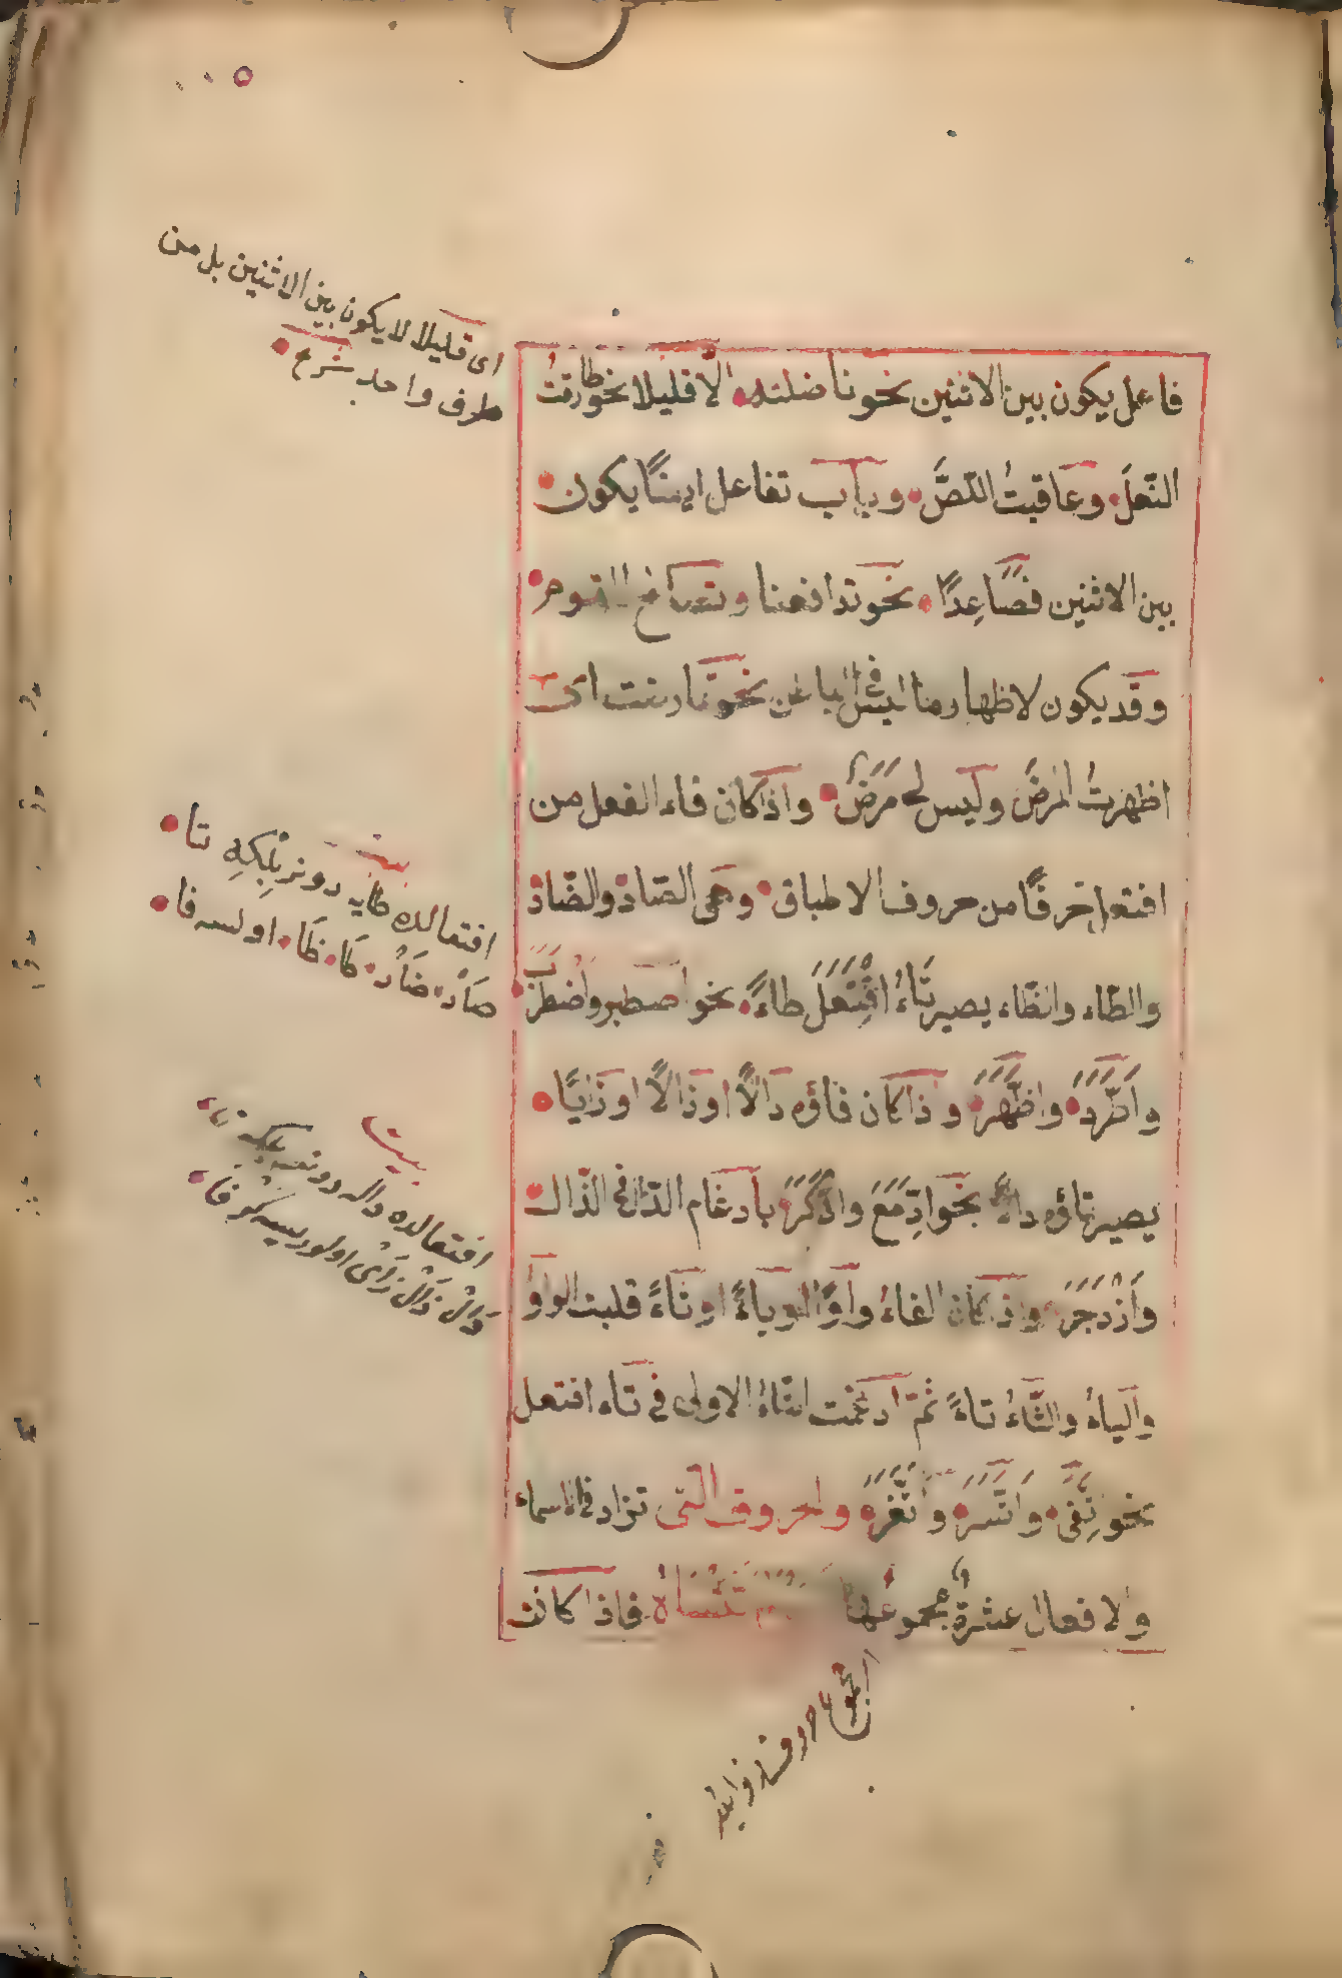 اى قليلا لا يكون بين الاثنين بل من
طرف واحد شرح
فاعل يكون بين الاثنين نحو ناضلته الا قليلا نحو طارقتُ
النّعلَ وعَاقبتُ اللّصَّ وباب تفاعل ايضًا يكون
بين الاثنين فصَاعِدًا نحو تدافعنا وتصالح القوم
وقد يكون لاظهار ما ليس فى الباطن نحو تمارضت اى
اظهرتُ المرضَ وليس لى مَرَضٌ واذا كان فاء الفعل من
افتعل حرفًا من حروف الاطباق وهى الصّادْ والضّادْ
والطّاء والظّاء يصير تَاءُ افْتَعَلَ طاءً نحو اصطبر واضطرَبَ
واَطّرَدَ واظّهَرَ واذا كان فاؤه دَالًا او ذالًا او زايًا
يصير تاؤه دالًا نحو ادّمَعَ واذّكَرَ بادغام الدّال فى الذّال
وَاَزْدَجَرَ واذا كان الفاءُ واوًا او ياءً او ثاءً قلبت الواوُ
والياءُ والثّاءُ تاءً ثمّ ادغمت التّاءُ الاولى فى تاء افتعل
نحو اتّقى وَاتّسَرَ وَاثّغَرَ والحروف التى تزاد فى الاسماء
والافعال عشرةٌ مجموعُها تَنْسَاهُ فاذا كانت
بيت
افتعالده طايه دونر بِلكِهِ تا
صَادْ ضَادْ طَا ظَا اولسه فا
بيت
افتعالده داله دونر بلكه تا
دَالْ ذَالْ زَاىْ اولورسه كر فا